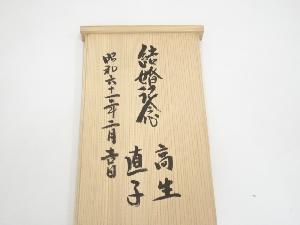 結婚記念
昭和六十一年二月吉日
高生
直子